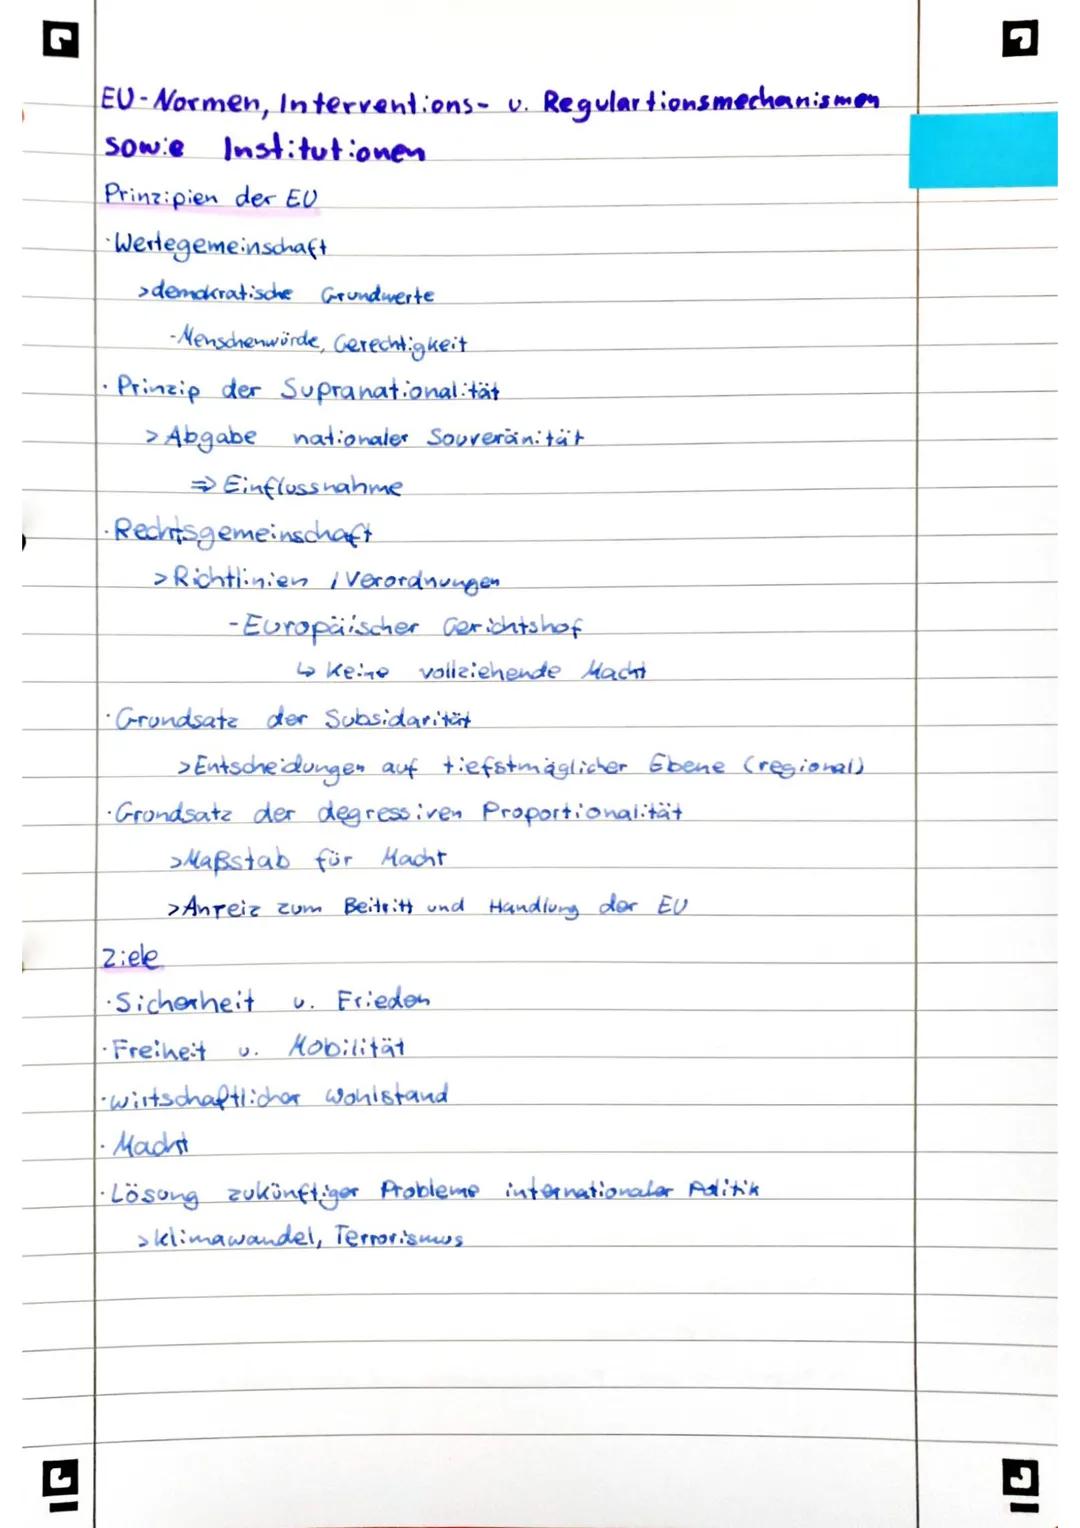 EU-Normen, Interventions- u. Regulartionsmechanismen
sowie Institutionen
Prinzipien der EU
·Wertegemeinschaft
>demokratische Grundwerte
-Menschenwürde, Gerechtigkeit
· Prinzip der Supranationalität
> Abgabe nationaler Souveränität
⇒ Einflussnahme
·Rechtsgemeinschaft
> Richtlinien / Verordnungen
-Europäischer Gerichtshof
↳ Keine vollziehende Macht
·Grundsatz der Subsidarität
>Entscheidungen auf tiefstmöglicher Ebene (regional)
·Grundsatz der degressiven Proportionalität
>Maßstab für Macht
>Anreiz zum Beitritt und Handlung der EU
Ziele
·Sicherheit u. Frieden
·Freiheit u. Mobilität
·wirtschaftlicher Wohlstand
· Macht
·Lösung zukünftiger Probleme internationaler Politik
>Klimawandel, Terrorismus